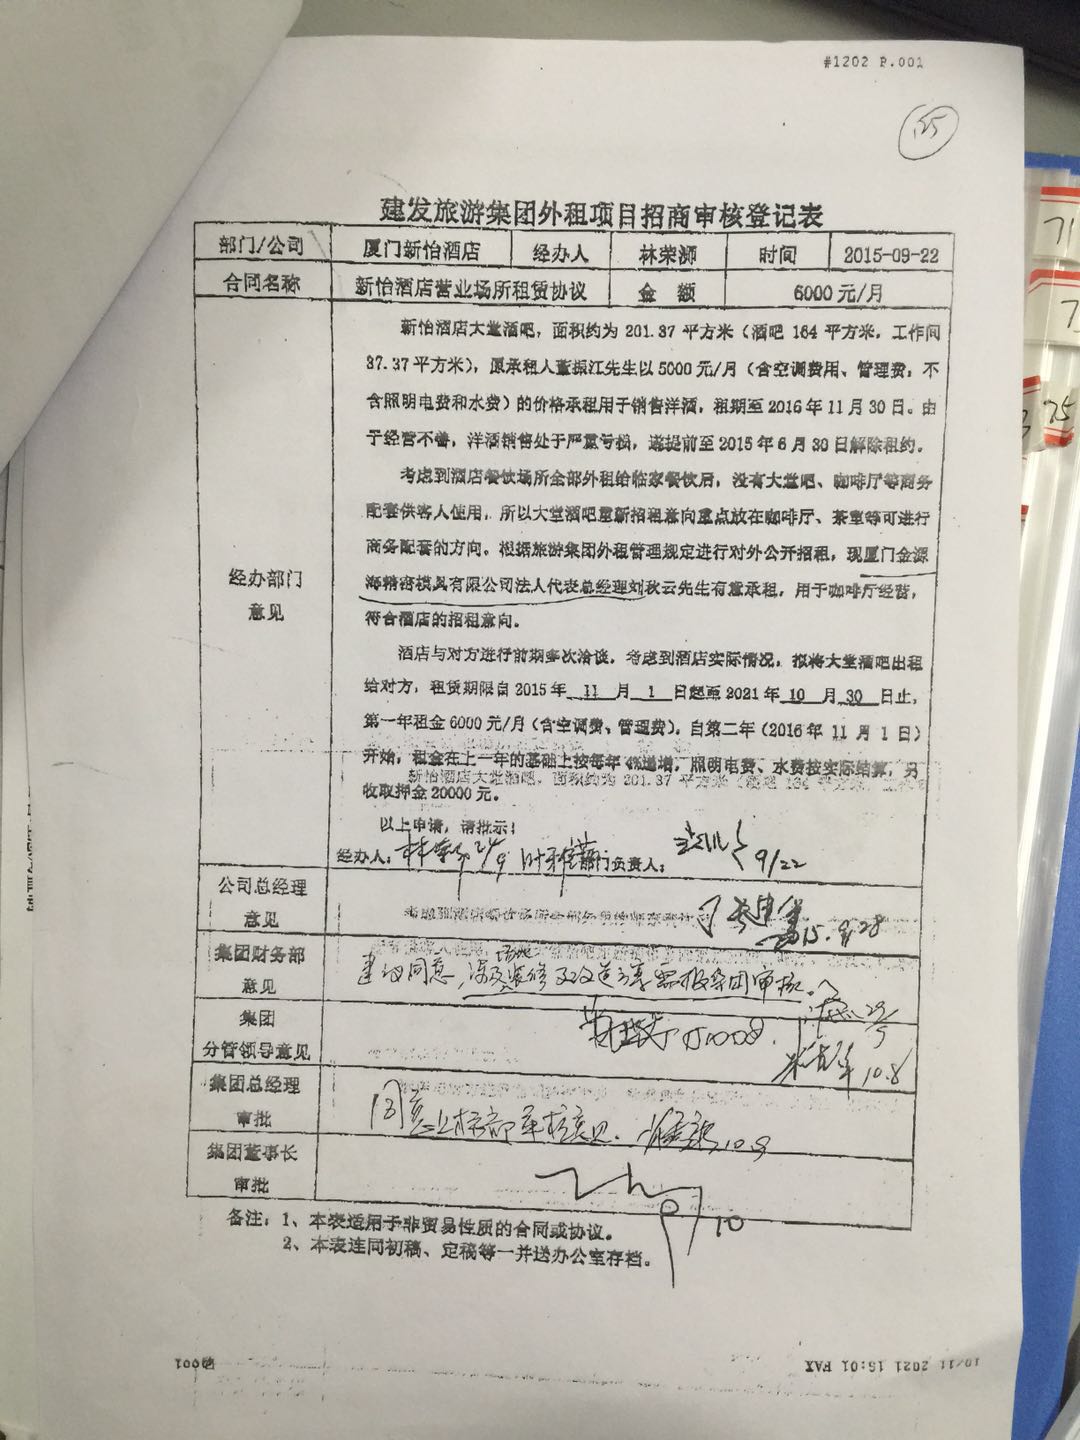 #1202 P.001
建发旅游集团外租项目招商审核登记表
部门/公司 厦门新怡酒店 经办人 林荣 时间 2015-09-22
合同名称 新怡酒店营业场所租赁协议 金额 6000元/月
新怡酒店大堂酒吧，面积约为201.37平方米（酒吧164平方米，工作间
37.37平方米），原承租人董振江先生以5000元/月（含空调费用、管理费，不
含照明电费和水费）的价格承租用于销售洋酒，租期至2016年11月30日。由
于经营不善，洋酒销售处于严重亏损，遂提前至2015年6月30日解除租约。
考虑到酒店餐饮场所全部外租给临家餐饮后，没有大堂吧、咖啡厅等商务
配套供客人使用，所以大堂酒吧重新招租意向重点放在咖啡厅、茶室等可进行
商务配套的方向。根据旅游集团外租管理规定进行对外公开招租，现厦门金源
海精密模具有限公司法人代表总经理刘秋云先生有意承租，用于咖啡厅经营，
经办部门
意见
符合酒店的招租意向。
酒店与对方进行前期多次洽谈，考虑到酒店实际情况，拟将大堂酒吧出租
给对方，租赁期限自2015年 11 月 1 日起至2021年 10 月 30 日止，
第一年租金6000元/月（含空调费、管理费），自第二年（2016年11月1日）
开始，租金在上一年的基础上按每年 递增，照明电费、水费按实际结算，另
新怡酒店大堂酒吧，面积约为201.37平方米（酒吧164平方米，工作
收取押金20000元。
以上申请，请批示！
经办人： 部门负责人： 9/22
公司总经理
意见
2015.9.28
集团财务部
意见
建议同意，涉及场地装修及改造方案需报集团审核。
集团
分管领导意见
10.8
集团总经理
审批
同意上核部审核意见. 10.9
集团董事长
审批
10
备注：1、本表适用于非贸易性质的合同或协议。
2、本表连同初稿、定稿等一并送办公室存档。
10/11 2021 15:01 FAX
001